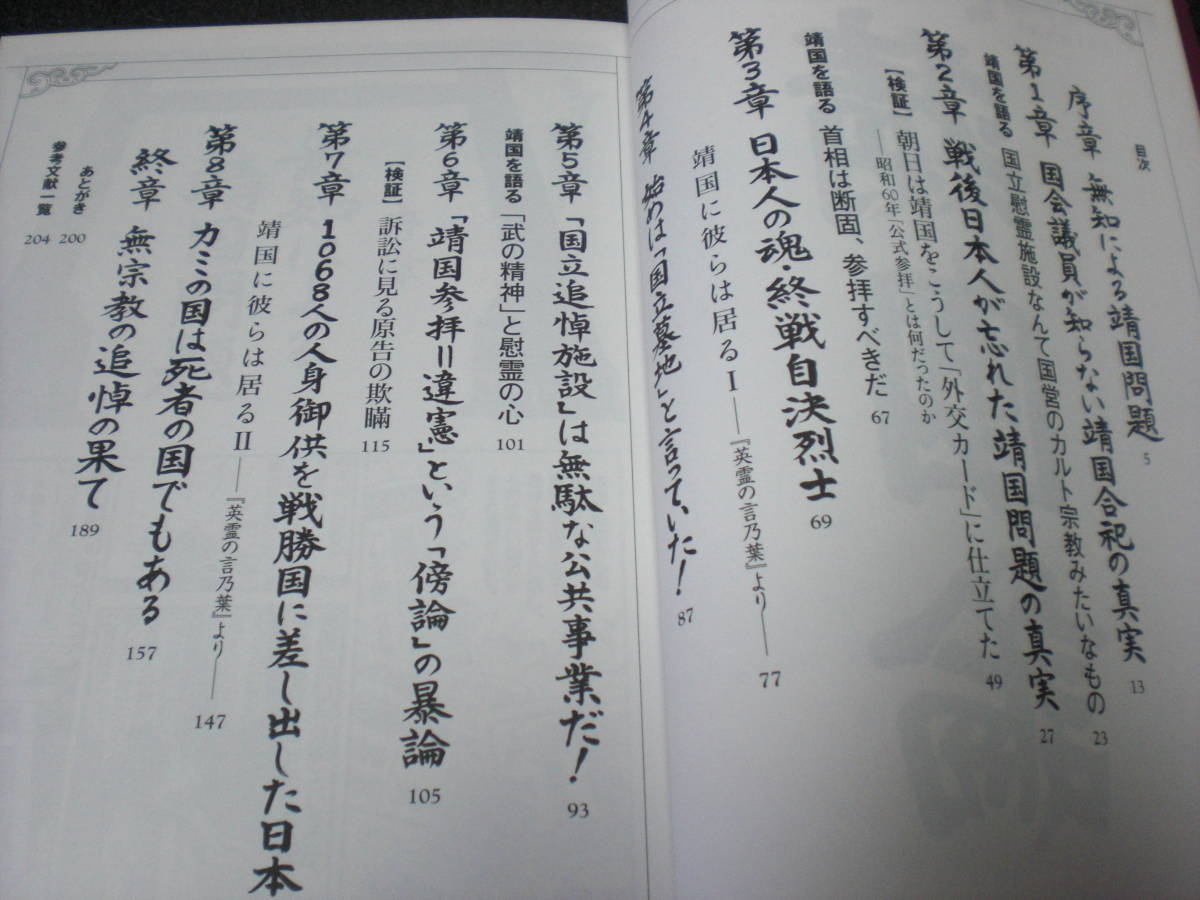 目次
序章 無知による靖国問題 5
第1章 国会議員が知らない靖国合祀の真実 13
靖国を語る 国立慰霊施設なんて国営のカルト宗教みたいなもの 23
第2章 戦後日本人が忘れた靖国問題の真実 27
【検証】 朝日は靖国をこうして「外交カード」に仕立てた 49
――昭和60年「公式参拝」とは何だったのか
靖国を語る 首相は断固、参拝すべきだ 67
第3章 日本人の魂・終戦自決烈士 69
靖国に彼らは居るⅠ――『英霊の言乃葉』より―― 77
第4章 始めは「国立墓地」と言っていた! 87
第5章 「国立追悼施設」は無駄な公共事業だ! 93
靖国を語る 「武の精神」と慰霊の心 101
第6章 「靖国参拝=違憲」という「傍論」の暴論 105
【検証】 訴訟に見る原告の欺瞞 115
第7章 1068人の人身御供を戦勝国に差し出した日本
靖国に彼らは居るⅡ――『英霊の言乃葉』より―― 147
第8章 カミの国は死者の国でもある 157
終章 無宗教の追悼の果て 189
あとがき 200
参考文献一覧 204